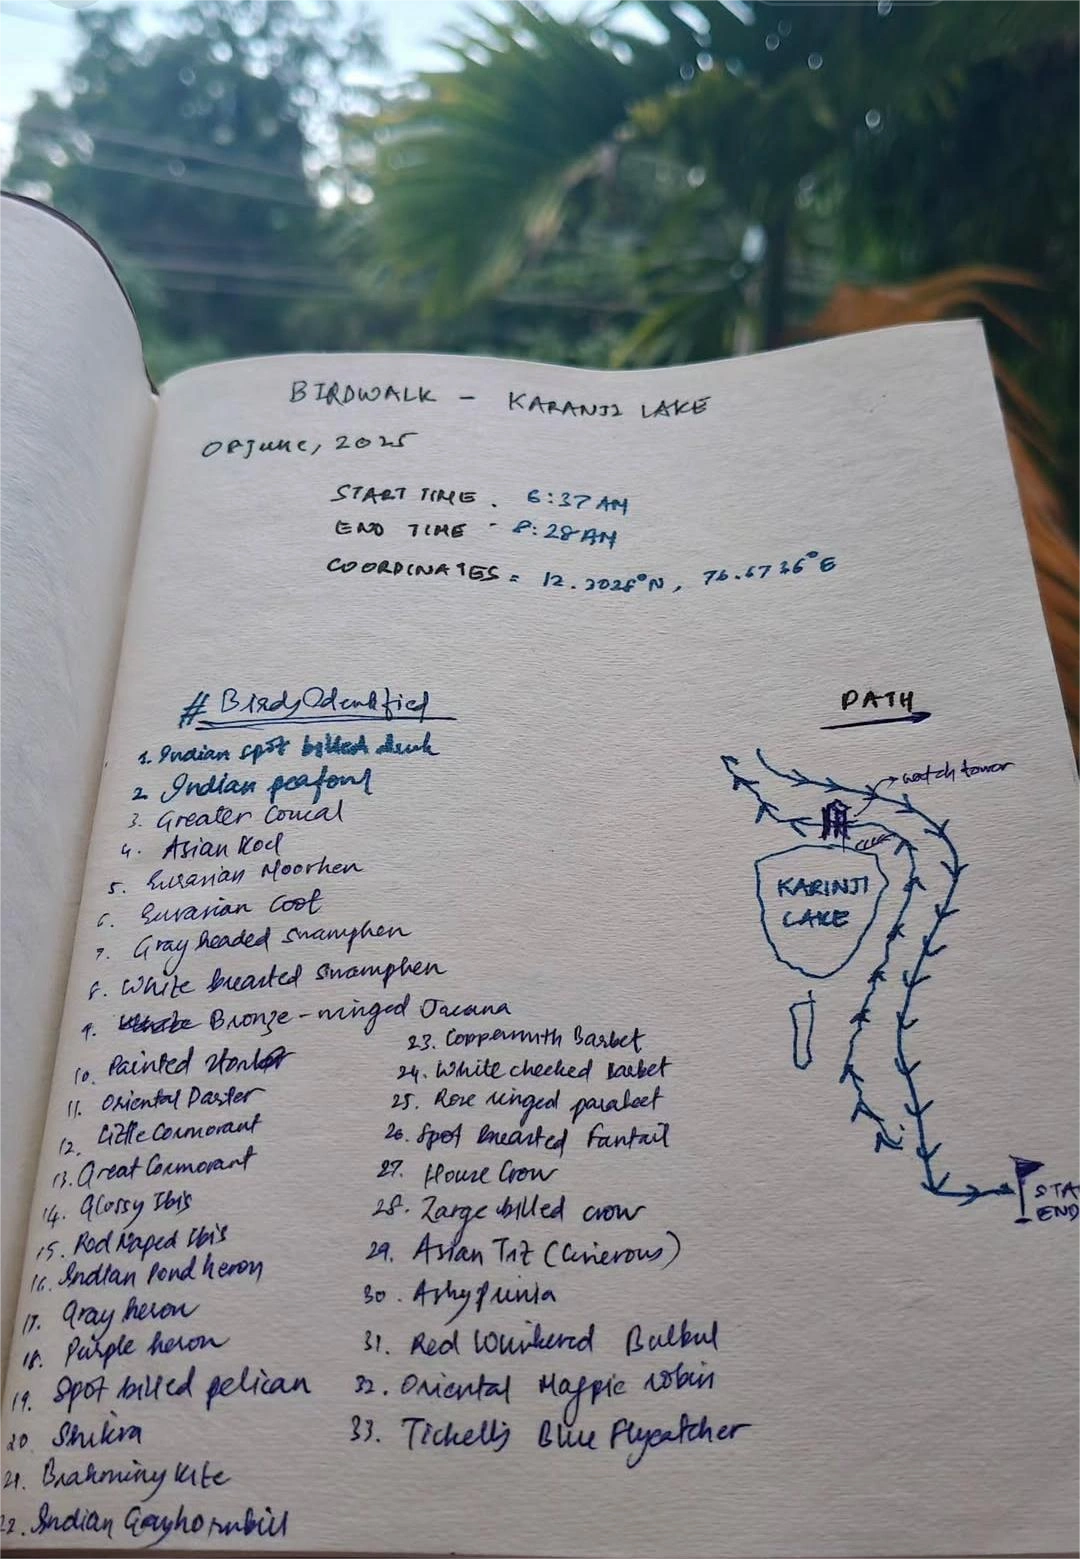 BIRDWALK - KARANJI LAKE
08 June, 2025
START TIME . 6:37 AM
END TIME - 8:28 AM
COORDINATES = 12.3028°N, 76.6736°E
# Birds Identified
1. Indian spot billed duck
2 Indian peafowl
3. Greater Coucal
4. Asian Koel
5. Eurasian Moorhen
6. Eurasian Coot
7. Gray headed swamphen
8. White breasted swamphen
9. Bronze-winged Jacana
10. Painted stork
11. Oriental Darter
12. Little Cormorant
13. Great Cormorant
14. Glossy Ibis
15. Red Naped Ibis
16. Indian Pond heron
17. Gray heron
18. Purple heron
19. Spot billed pelican
20 Shikra
21. Brahminy Kite
22. Indian Grayhornbill
23. Coppersmith Barbet
24. White cheeked barbet
25. Rose ringed parakeet
26. Spot breasted fantail
27. House Crow
28. Large billed crow
29. Asian Tit (Cinerous)
30. Ashy prinia
31. Red Whiskered Bulbul
32. Oriental Magpie robin
33. Tickell's Blue Flycatcher
PATH
watch tower
KARINJI
LAKE
STA
END